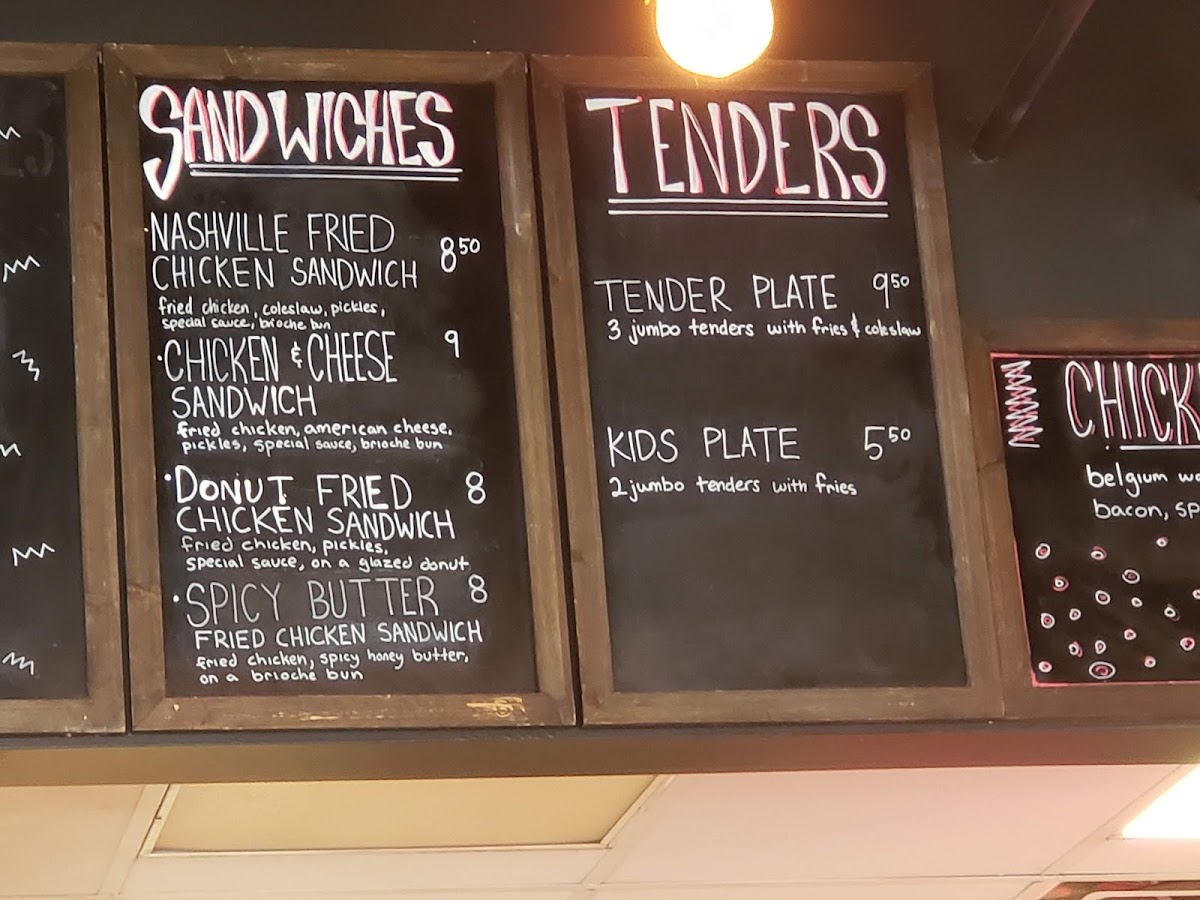 SANDWICHES
·NASHVILLE FRIED
CHICKEN SANDWICH 8 50
fried chicken, coleslaw, pickles,
special sauce, brioche bun
·CHICKEN & CHEESE 9
SANDWICH
fried chicken, american cheese,
pickles, special sauce, brioche bun
·DONUT FRIED 8
CHICKEN SANDWICH
fried chicken, pickles,
special sauce, on a glazed donut
·SPICY BUTTER 8
FRIED CHICKEN SANDWICH
fried chicken, spicy honey butter,
on a brioche bun
TENDERS
TENDER PLATE 9 50
3 jumbo tenders with fries & coleslaw
KIDS PLATE 5 50
2 jumbo tenders with fries
CHICK
belgium
bacon,